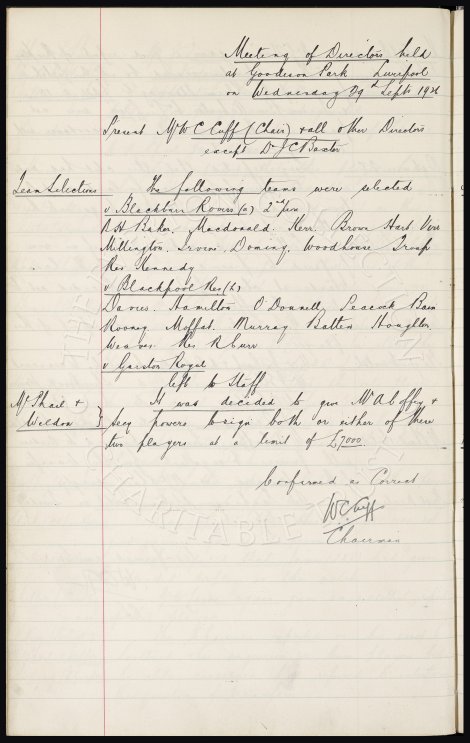 Meeting of Directors held
at Goodison Park Liverpool
on Wednesday 29th Septr 1926
Present Mr W C Cuff (Chair) & all other Directors
except Dr J C Baxter
Team Selections The following teams were selected
v Blackburn Rovers (a) 2nd Turn
B H Baker. Macdonald. Kerr. Brown Hart Virr
Millington. Irvine. Dominy. Woodhouse Troup
Res Kennedy
v Blackpool Res (h)
Davies. Hamilton O'Donnell Peacock Bain
Rooney Moffat. Murray Batten Houghton
Weaver. Res R Curr
v Garston Royal
left to Staff
McPhail & It was decided to give Mr A Coffey &
Weldon } Secy powers to sign both or either of these
two players at a limit of £7000.
Confirmed as Correct
W C Cuff
Chairman
CHARITABLE